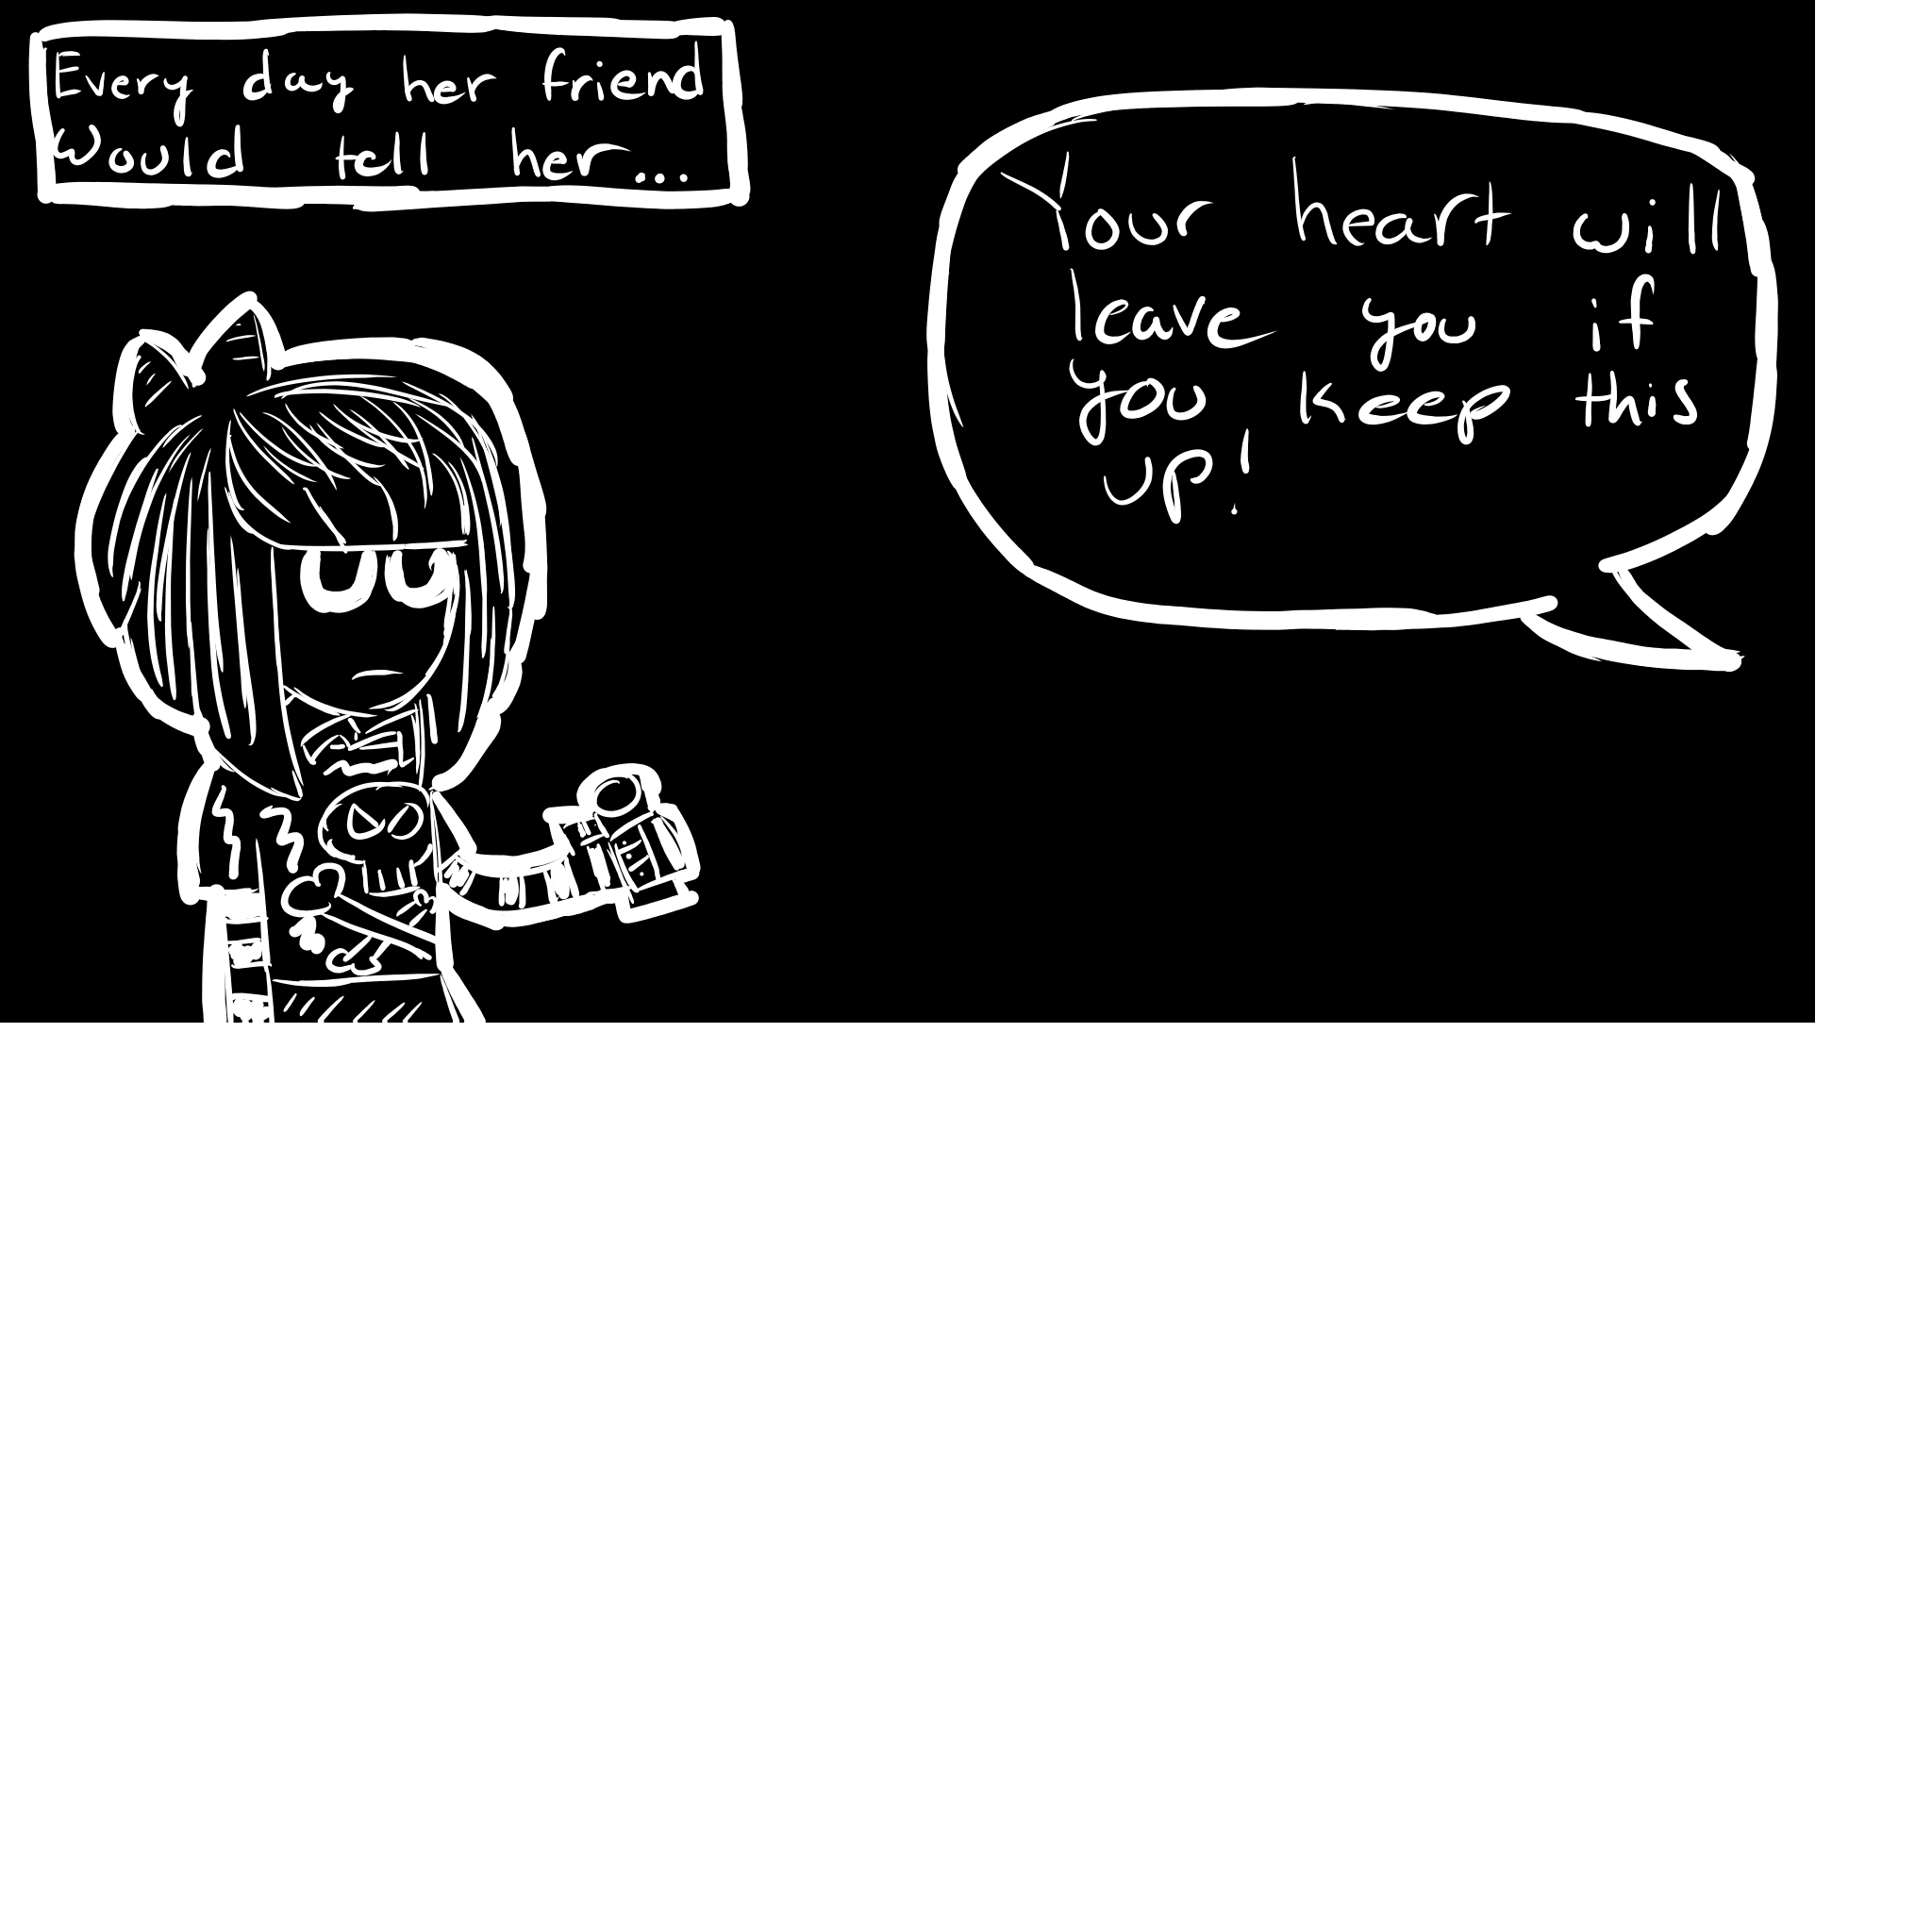 Every day her friend
Would tell her...
Your heart will
leave you if
you keep this
up!